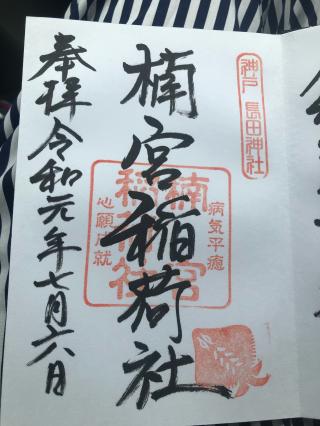 神戸 長田神社
楠宮稲荷社
病気平癒
楠宮
稲荷社
心願成就
奉拝 令和元年七月六日